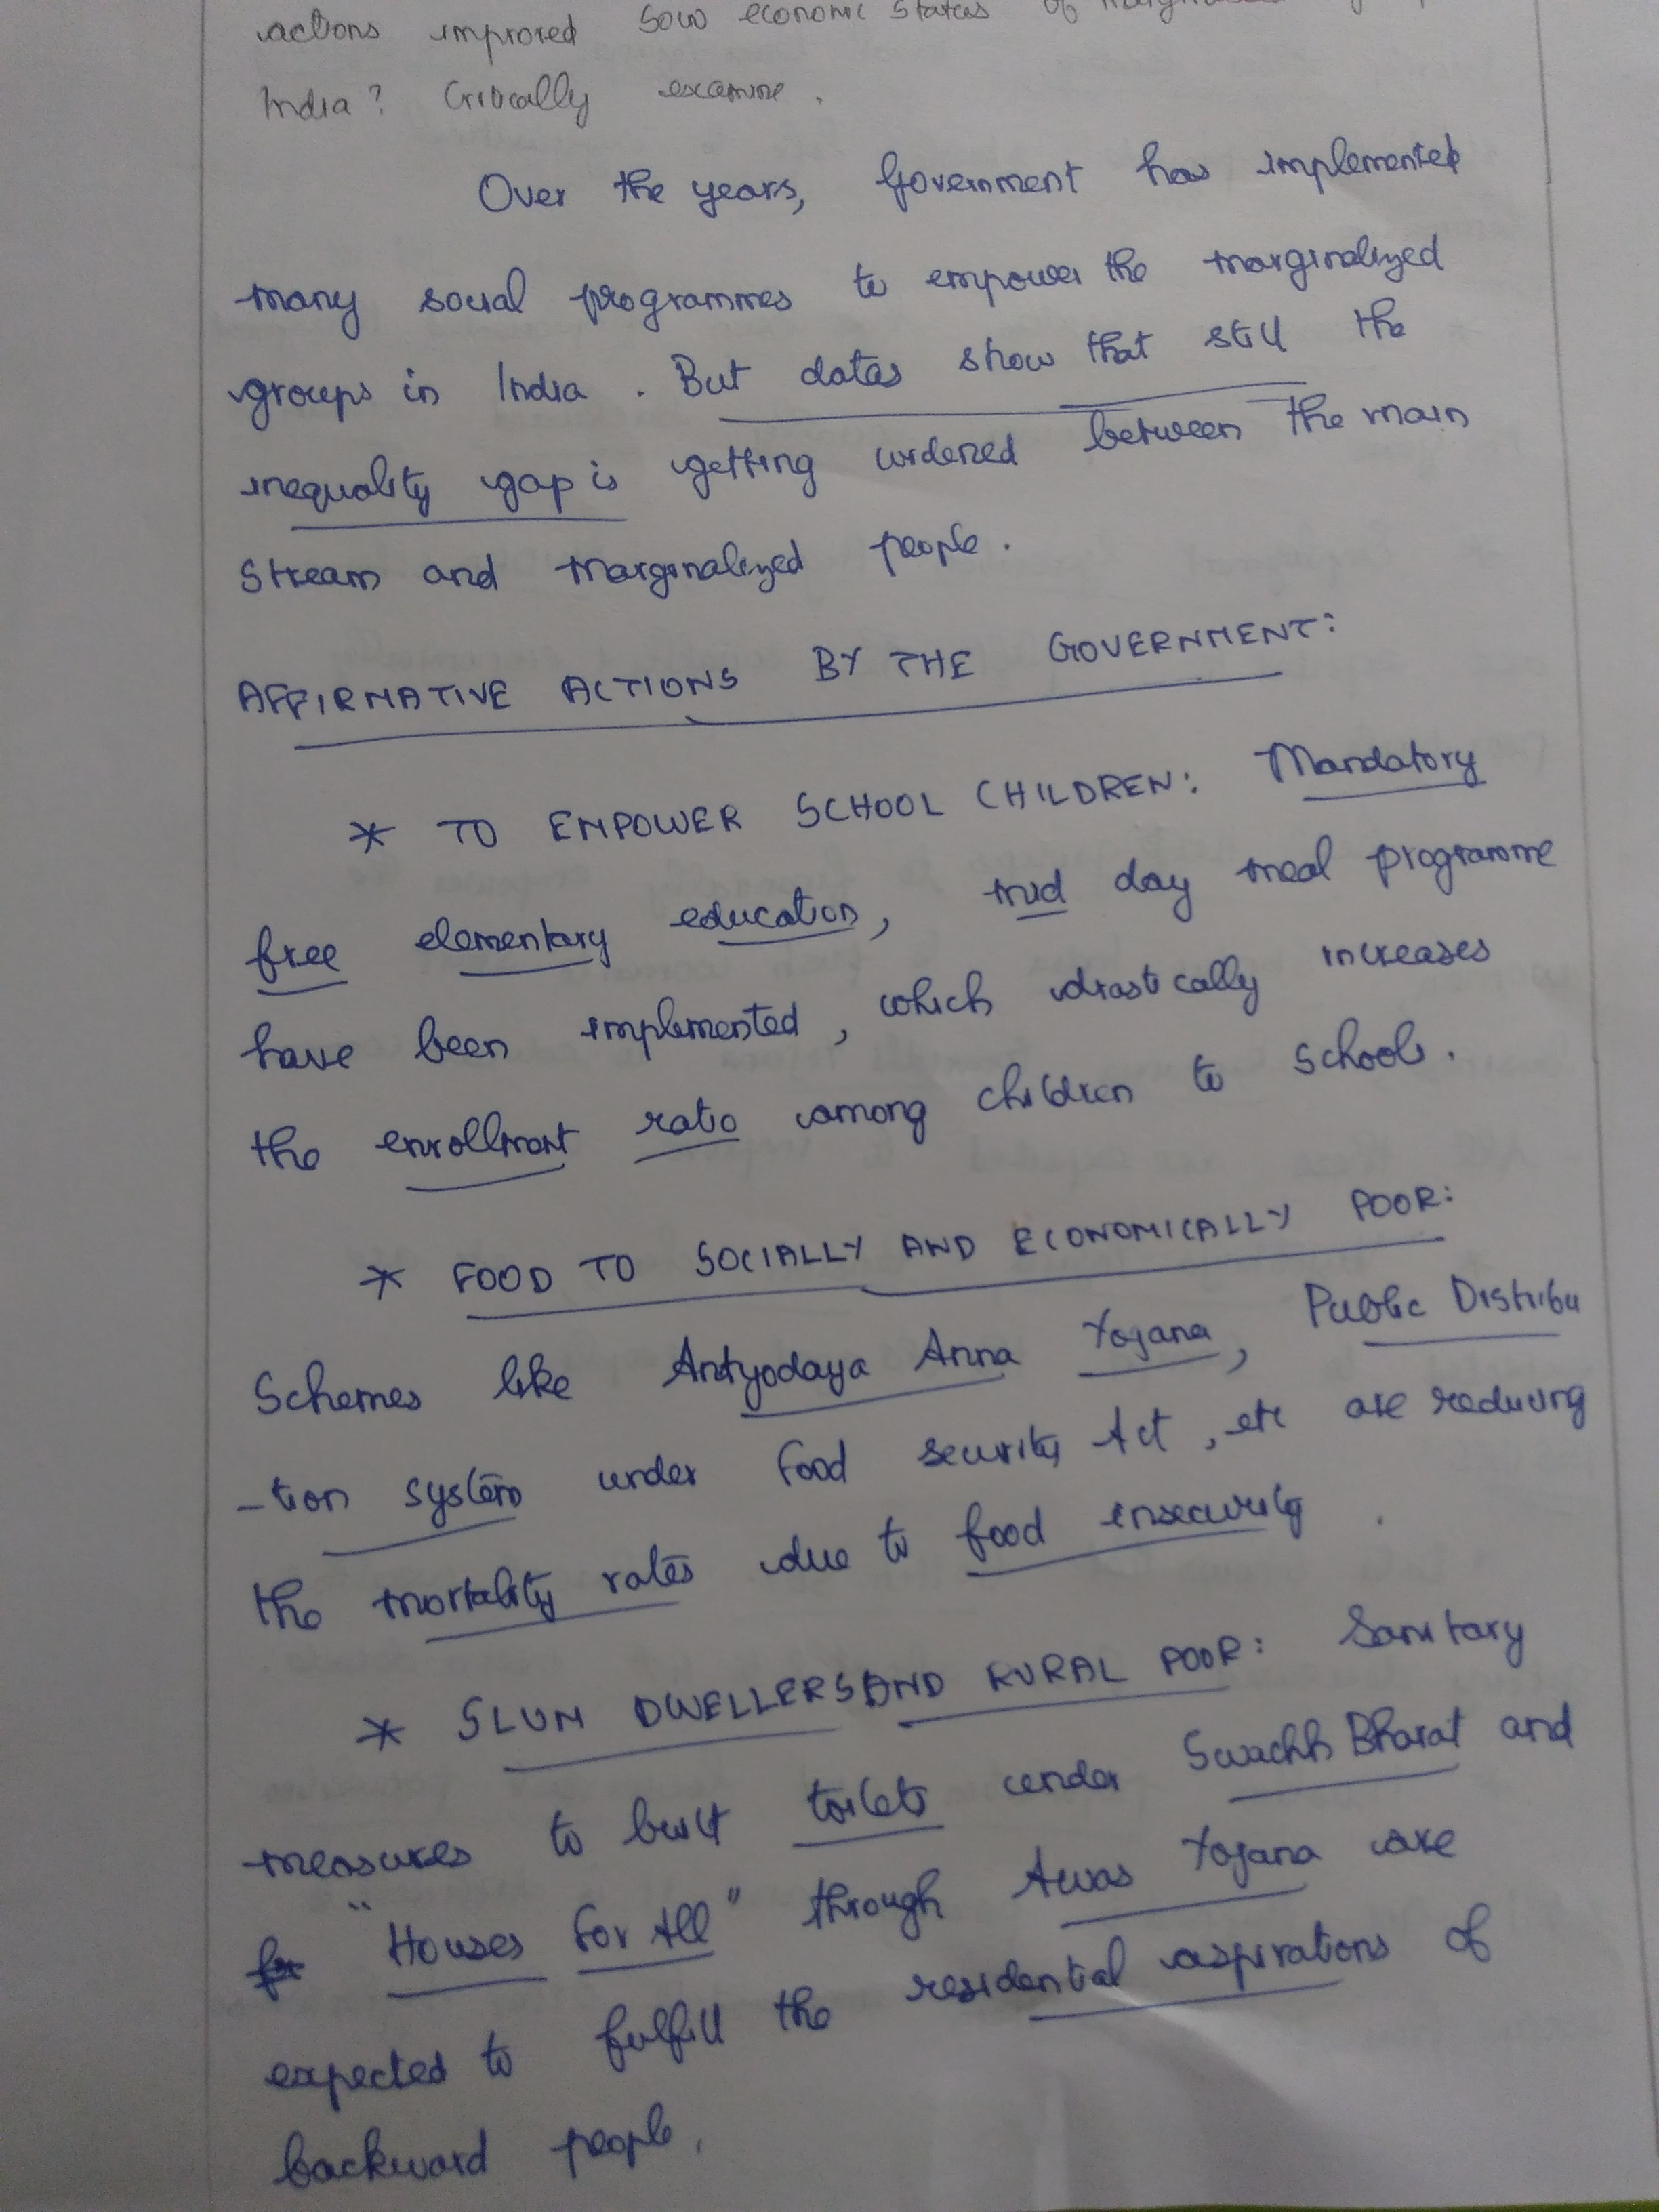 actions improved socio economic status of
India? Critically examine.
Over the years, Government has implemented
many social programmes to empower the marginalized
groups in India. But datas show that still the
inequality gap is getting widened between the main
stream and marginalized people.
AFFIRMATIVE ACTIONS BY THE GOVERNMENT:
* TO EMPOWER SCHOOL CHILDREN: Mandatory
free elementary education, mid day meal programme
have been implemented, which drastically increases
the enrollment ratio among children to schools.
* FOOD TO SOCIALLY AND ECONOMICALLY POOR:
Schemes like Antyodaya Anna Yojana, Public Distribu
-tion system under Food security Act, etc are reducing
the mortality rates due to food insecurity.
* SLUM DWELLERS AND RURAL POOR: Sanitary
measures to built toilets under Swachh Bharat and
"Houses For All" through Awas Yojana are
expected to fulfill the residential aspirations of
backward people.